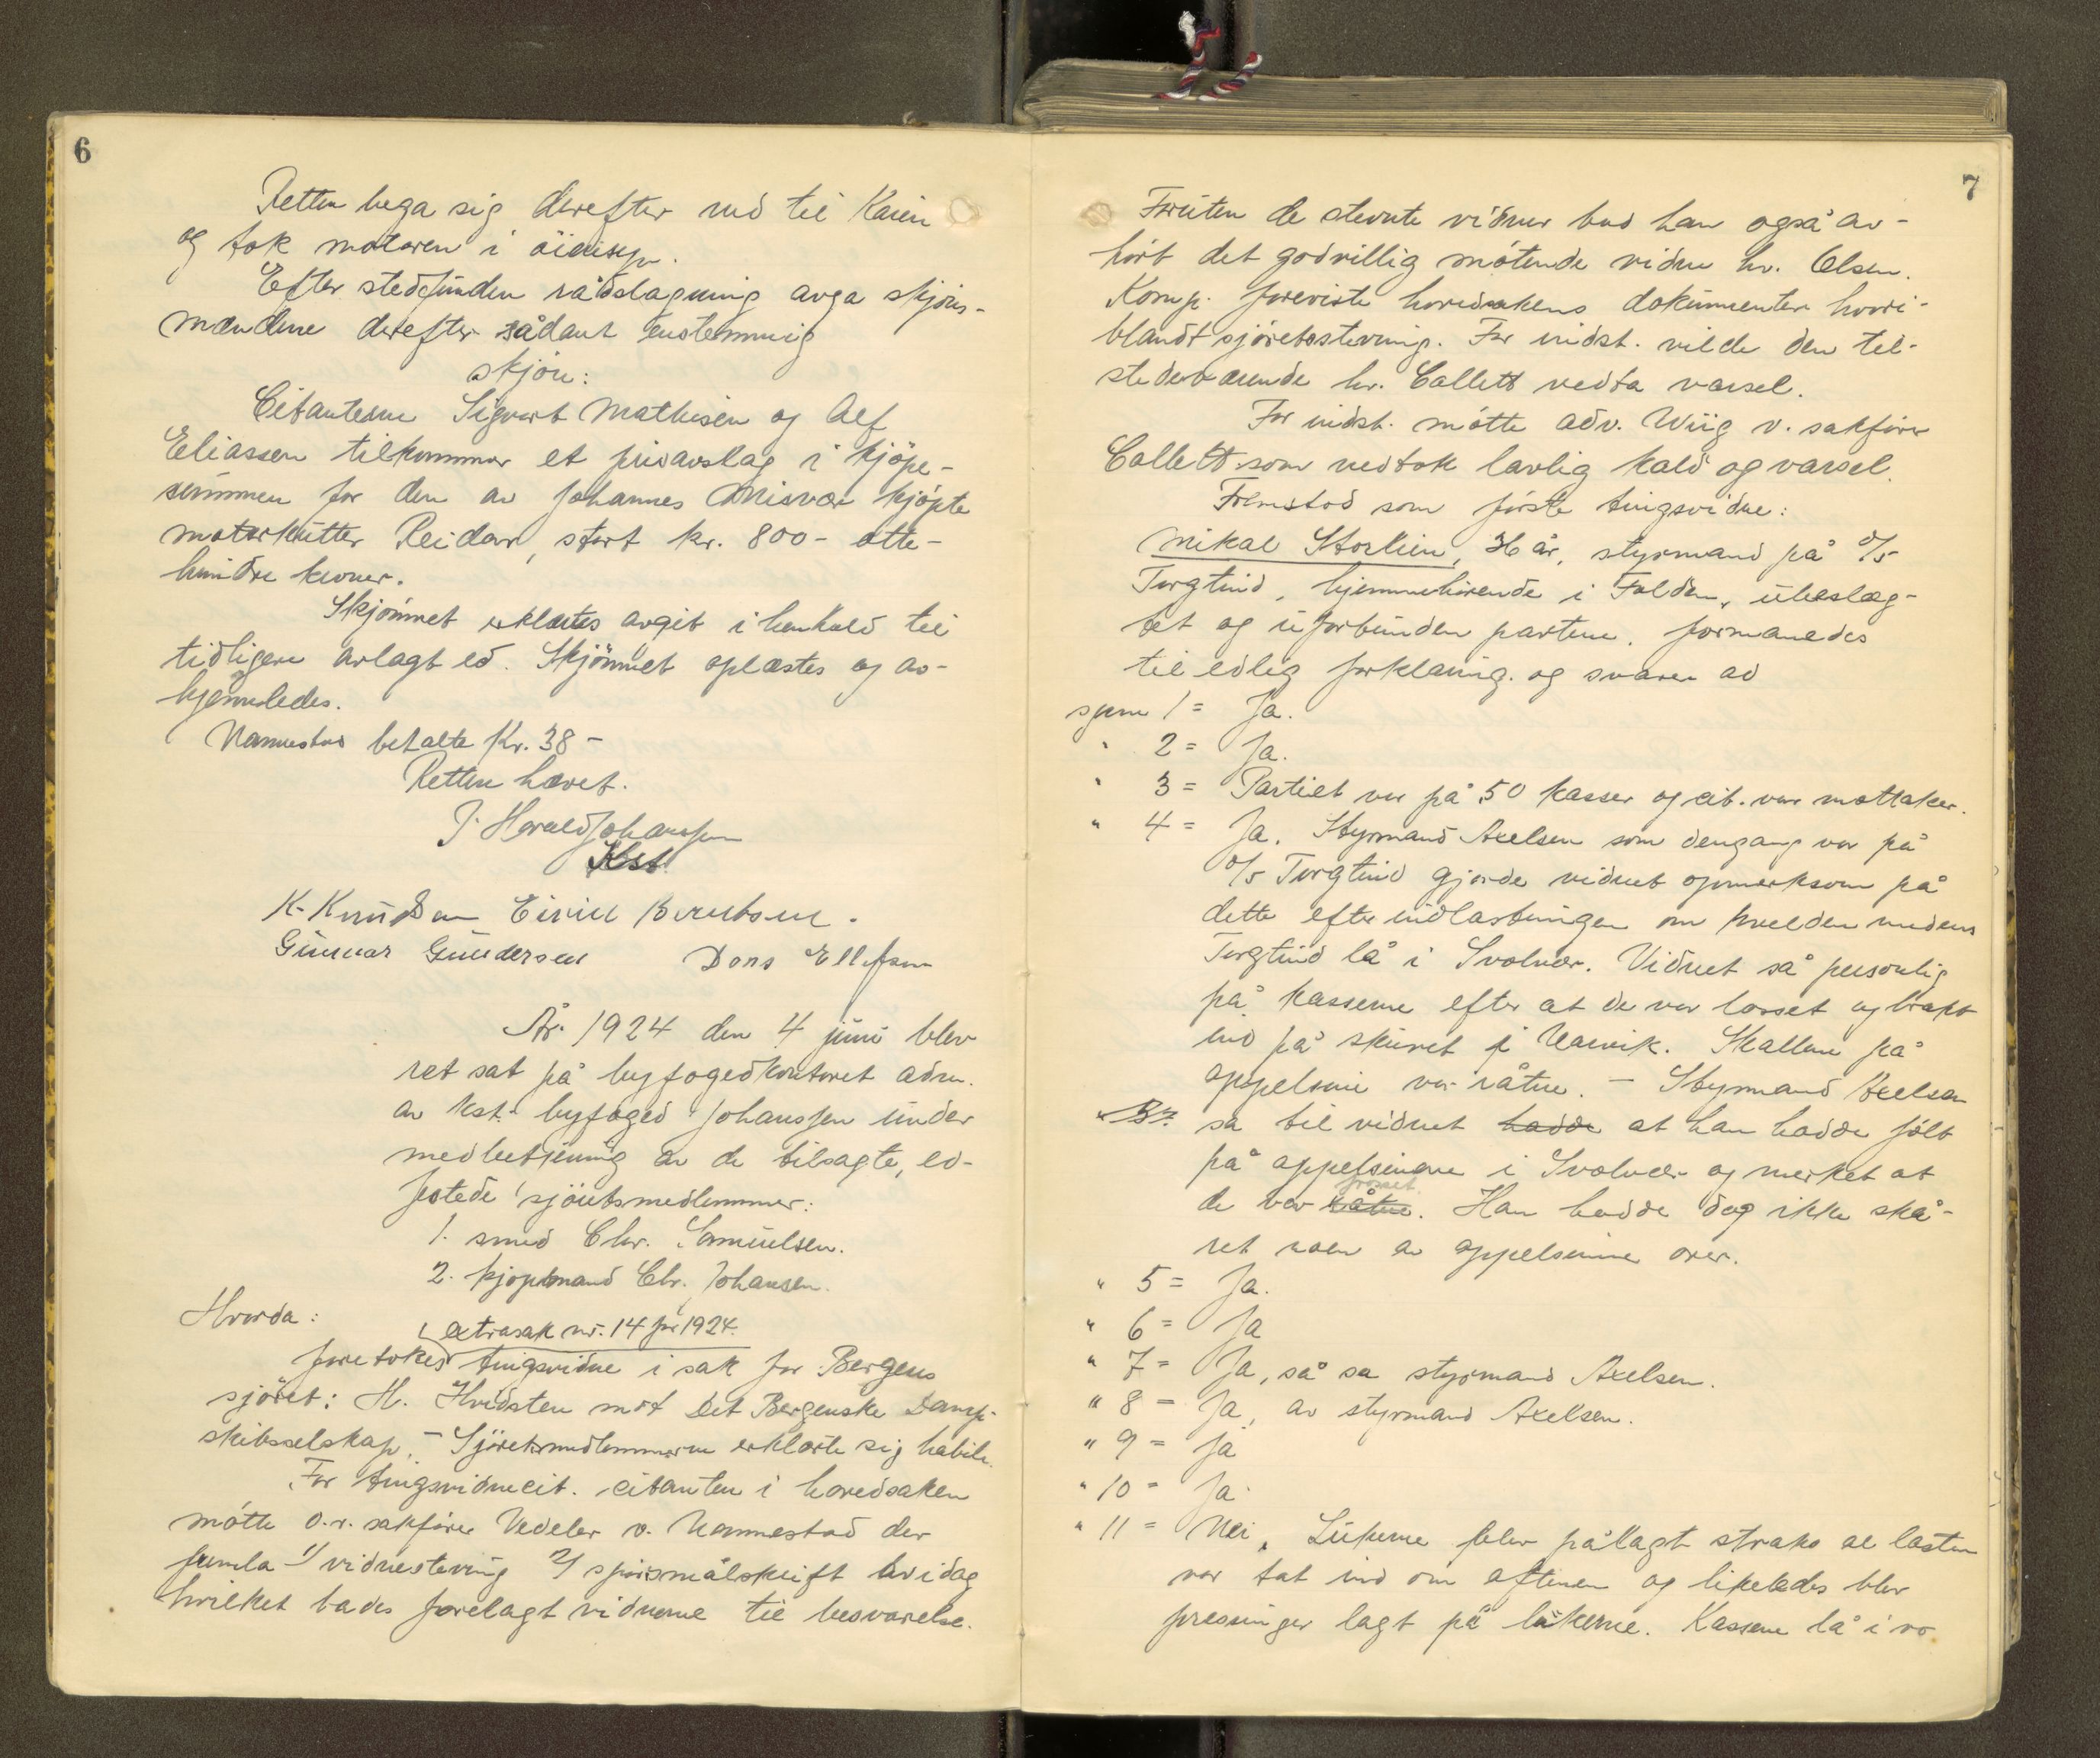 6
Retten bega sig derefter ned til Kaien
og tok motoren i öiesyn.
Efter stedfunden rådslagning avga skjöns-
mændene derefter sådant enstemmig
skjön:
Citanterne Sigvart Mathisen og Alf
Eliassen tilkommer et prisavslag i kjöpe-
summen for den av Johannes Misvær kjöpte
motorkutter Reidar, stort kr. 800- otte-
hundre kroner.
Skjönnet erklærtes avgit i henhold til
tidligere avlagt ed. Skjönnet oplæstes og av-
hjemledes.
Nannestad betalte Kr. 38-
Retten hævet.
J. Harald Johanssen
Kst.
K. Knudsen Eivin Berntsen.
Gunnar Gundersen Dons Ellefsen
År 1924 den 4 juni blev
ret sat på byfogedkontoret adm.
av kst. byfoged Johanssen under
medbetjening av de tilsagte, ed-
festede sjöretsmedlemmer:
1. smed Chr. Samuelsen.
2. kjöpmand Chr. Johansen.
Hvorda:
extrasak nr. 14 for 1924.
foretokes tingsvidne i sak for Bergens
sjöret: H. Hvidsten mot Det Bergenske Damp-
skibsselskap. - Sjöretsmedlemmerne erklærte sig habile.
For tingsvidnecit. citanten i hovedsaken
mötte o.r. sakförer Vedeler v. Nannestad der
fremla 1/ vidnestevning 2/ spörsmålskrift av idag
hvilket bades forelagt vidnerne til besvarelse.
7
Foruten de stevnte vidner bad han også av-
hört det godvillig mötende vidne hr. Olsen.
Komp. foreviste hovedsakens dokumenter hvori-
blandt sjöretsstevning. For indst. vilde den til-
stedeværende hr. Collett vedta varsel.
For indst. mötte adv. Wiig v. sakförer
Collett som vedtok lavlig kald og varsel.
Fremstod som förste tingsvidne:
Mikal Storlien, 36 år, styrmand på d/s
Torgtind, hjemmehörende i Folden, ubeslæg-
tet og uforbunden partene. formanedes
til edlig forklaring. og svarer ad
spm 1 = Ja.
" 2 = Ja.
" 3 = Partiet var på 50 kasser og cit. var mottaker.
" 4 = Ja. Styrmand Axelsen som dengang var på
d/s Torgtind gjorde vidnet opmerksom på
dette efter indlastningen om kvelden medens
Torgtind lå i Svolvær. Vidnet så personlig
på kasserne efter at de var losset og brakt
ind på skuret i Narvik. Skallene på
appelsine var råtne. - Styrmand Axelsen
sa til vidnet hadde at han hadde fölt
på appelsinene i Svolvær og merket at
de var råtne frosset. Han hadde dog ikke skå-
ret noen av appelsinene over.
" 5 = Ja.
" 6 = Ja
" 7 = Ja, så sa styrmand Axelsen.
" 8 = Ja, av styrmand Axelsen.
" 9 = Ja
" 10 = Ja.
" 11 = Nei. Lukerne blev pålagt straks al lasten
var tat ind om aftenen og likeledes blev
presninger lagt på lukerne. Kassene lå i ro